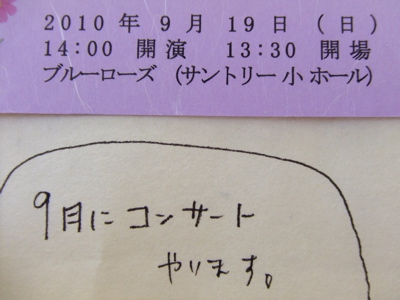 2010年9月19日(日)
14:00 開演 13:30 開場
ブルーローズ (サントリー小ホール)
9月にコンサート
やります。